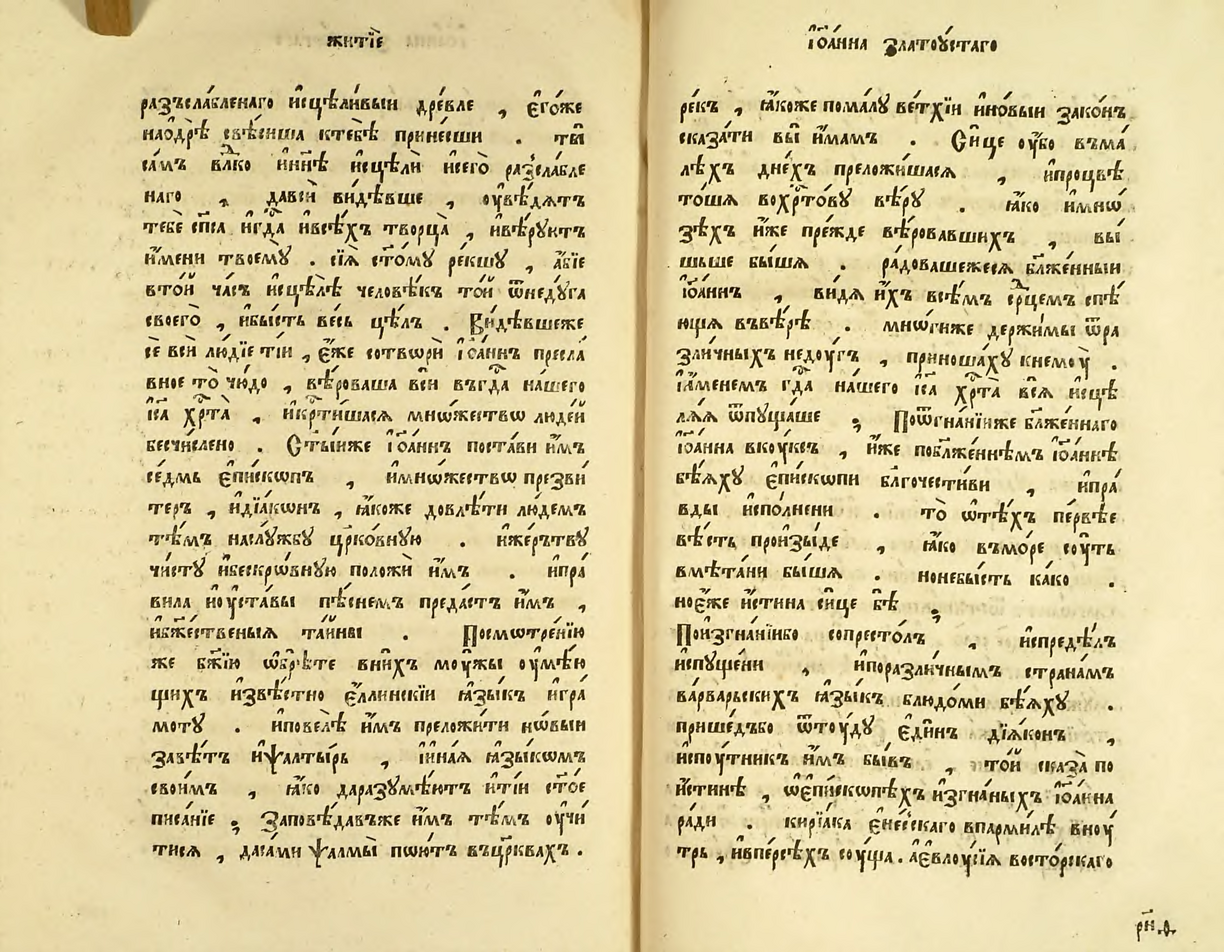 житїѐ
разъсла́бленаго и҆сцѣли́выи дре́вле , є҆го́же
наодрѣ̀ свѣ́сиша ктебѣ̀ прине́сши . ты̀
са́мъ вл҃ко и҆нн҃ѣ и҆сцѣлѝ исего̀ разсла́бле
наго , давсѝ ви́дѣвше , оу҆вѣ́дѧтъ
тебѐ сп҃са и҆гд҃а и҆всѣ́хъ творца̀ , и҆вѣ́руютъ
и҆́мени твоемꙋ̀ . сїѧ̀ ст҃о́мꙋ ре́кшꙋ , а҆́бїе
втои̑ ча́съ и҆сцѣлѣ̀ человѣ́къ то́и ѿнедꙋ́га
своего̀ , и҆бы́сть ве́сь цѣ́лъ . Ви́дѣвшеже
сѐ всѝ лю́дїе тїѝ , є҆́же сотворѝ і҆ѡа́ннъ пресла́
вное то̀ чю́до , вѣ́роваша всѝ въгд҃а на́шего
і҆с҃а хр҃та̀ , и҆кр҃ти́шасѧ мно́жество люде́и
бесчи́слено . Ст҃ы́иже і҆ѡа́ннъ поста́ви и҆̀мъ
се́дмь є҆пи́скопъ , и҆мно́жество презви́
теръ , и҆дїа́конъ , ꙗ҆́коже довлѣ́ти лю́демъ
тѣ́мъ наслꙋ́жбꙋ цр҃ко́внꙋю . и҆же́рътвꙋ
чи́стꙋ и҆бескро́внꙋю положѝ и҆̀мъ . и҆пра́
вила и҆оу҆ста́вы пѣ́снемъ преда́стъ и҆̀мъ ,
и҆бж҃е́ственыѧ та́ины . Посмотре́нїю
же бж҃їю ѡ҆брѣ́те вни́хъ мо́ужы оу҆мѣ́ю
щихъ и҆звѣ́стно є҆́ллинскїи ꙗ҆зы́къ и҆гра́
мотꙋ . и҆повелѣ̀ и҆̀мъ преложи́ти но́выи
завѣ́тъ и҆ѱалты́рь , і҆ина́ѧ ꙗ҆зы́комъ
свои́мъ , ꙗ҆́ко даразꙋмѣ́ютъ и҆тїѝ ст҃о́е
писа́нїе ; Заповѣ́давъже и҆̀мъ тѣ́мъ оу҆чи́
тисѧ , даса́ми ѱалмы̀ пою́тъ въцр҃квахъ .
і҆ѡа́нна златоꙋ́стаго
ре́къ , ꙗ҆́коже пома́лꙋ ве́тхїи и҆но́выи зако́нъ
сказа́ти вы̀ и҆́мамъ . Си́це оу҆́бо въма́
лѣхъ дне́хъ преложи́шасѧ , и҆процвѣ
то́шѧ вохр҃то́вꙋ вѣ́рꙋ . ꙗ҆́ко и҆мно́
зѣхъ и҆́же пре́жде вѣ́ровавшихъ , вы́
шьше бы́шѧ . ра́довашежесѧ бл҃же́нныи
і҆ѡа́ннъ , ви́дѧ и҆́хъ всѣ́мъ ср҃цемъ спѣ́
ющѧ въвѣ́рѣ . мно́гиже держи́мы ѿра
зли́чныхъ недо́угъ , приноша́хꙋ кнемо́у .
і҆и҆́менемъ гд҃а на́шего і҆с҃а хр҃та̀ всѧ̀ и҆сцѣ
лѧ́ѧ ѿпꙋща́ше ; Поѿгна́нїиже бл҃же́ннаго
і҆ѡа́нна вко́уксъ , и҆́же побл҃же́ннѣмъ і҆ѡа́ннѣ
бѣ́ѧхꙋ є҆пи́скопи бл҃гочести́ви , и҆пра́
вды и҆спо́лнени . то̀ ѡ҆тѣ́хъ пе́рвѣе
вѣ́сть произы́де , ꙗ҆́ко въмо́ре со́уть
вме́тани бы́шѧ . нонебы́сть ка́ко .
ноє҆́же и҆́стина си́це бѣ̀ ;
Поизгна́нїибо сопресто́лъ , и҆спредѣ́лъ
и҆спꙋ́щени , и҆поразли́чнымъ страна́мъ
ва́рварьскихъ ꙗ҆зы́къ блюдо́ми бѣ́ѧхꙋ .
прише́дъбо ѿто́удꙋ є҆ди́нъ дїѧ́конъ ,
и҆спо́утникъ и҆̀мъ бы́въ , то́и сказа̀ по
и҆́стинѣ , ѡ҆є҆пи́скопѣхъ и҆згна́ныхъ і҆ѡа́нна
ра́ди . кирїа́ка є҆не́сскаго впарми́лѣ вно́у
трь , и҆впе́рсѣхъ со́уща . а҆є҆влоу́сїѧ восто́рскаго
рн҃ѳ.